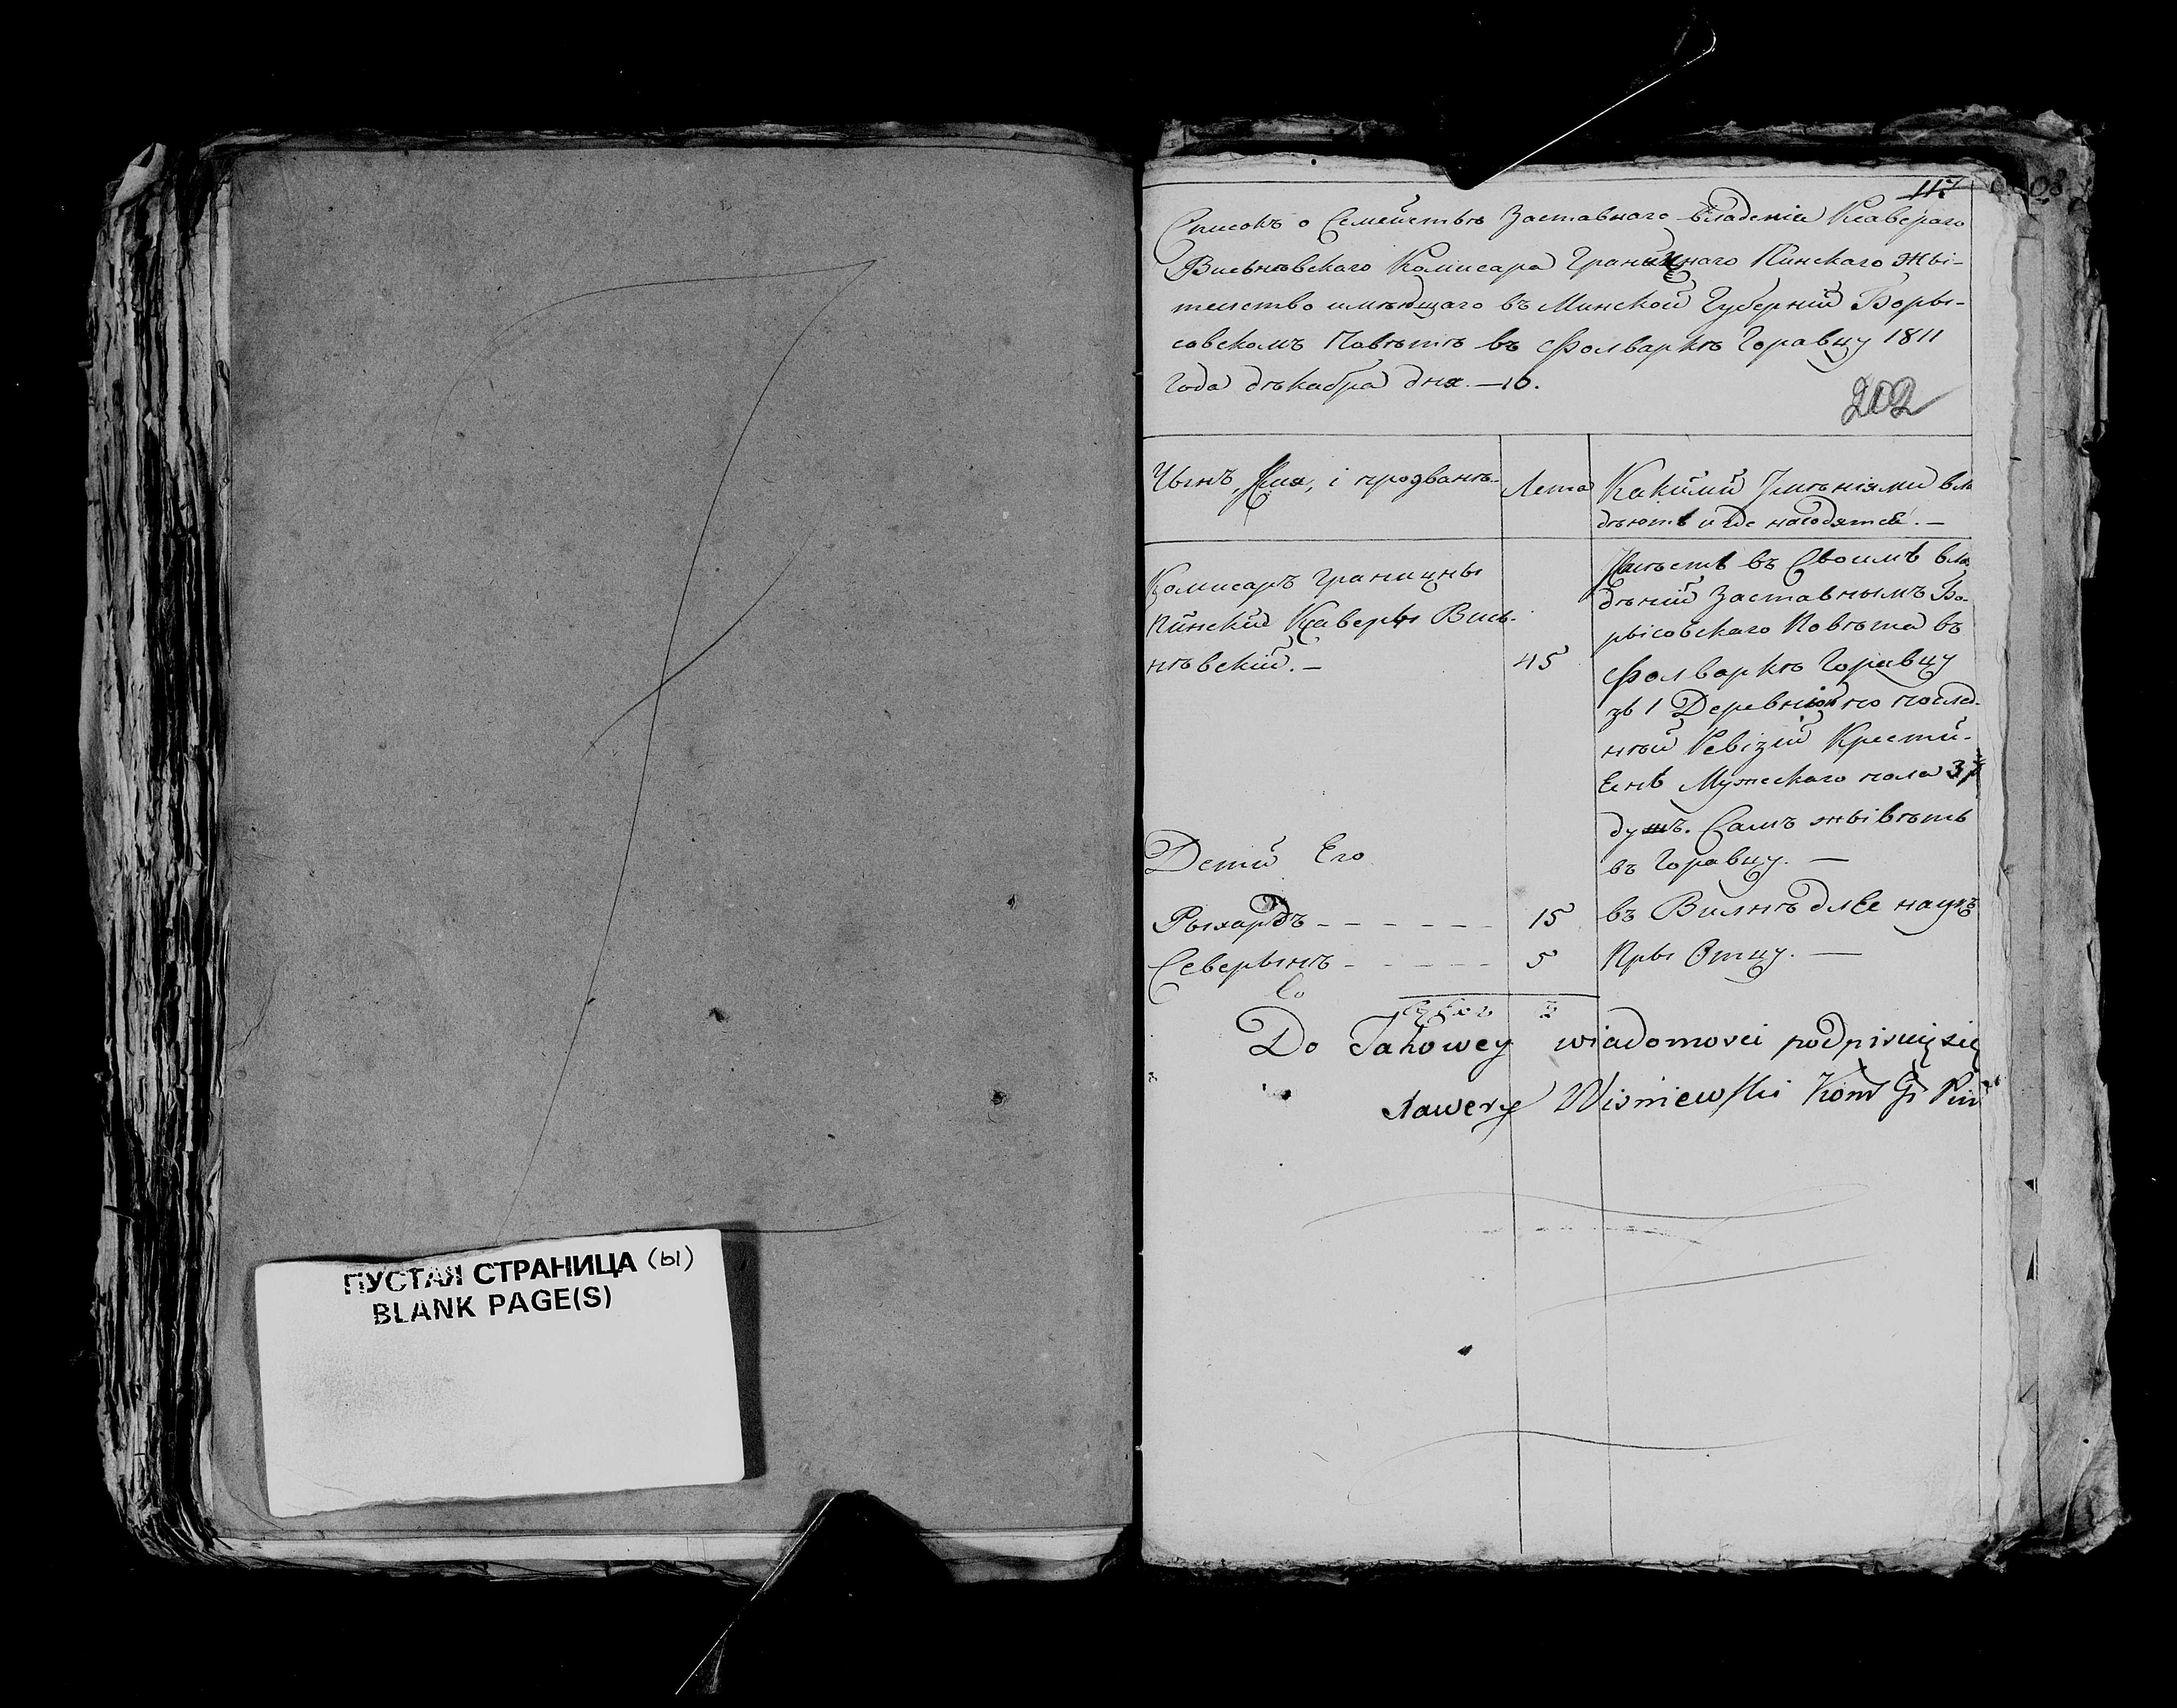 ПУСТАЯ СТРАНИЦА (ы)
BLANK PAGE(S)
117
Списокъ о Семействѣ Заставнаго владенія Ксаверего
Висьнѣвскаго Комисара Граничнаго Пинскаго Жьі-
телство имѣющаго въ Минской Губерніи Боры-
совскомъ Повѣтѣ въ Фолваркѣ Горавцу 1811
года дѣкабра дня. — 10.
202
Чынъ, Имя, і прозванѣ-
Лета
Какіми Имѣніями вла
дѣютъ и где находятсе. —
Комисаръ Границны
Пинскій Ксаверы Вись-
нѣвскій. —
45
Имѣетъ въ Своимъ вла
дѣніи Заставнымъ Бо-
рысовскаго Повѣта въ
Фолваркѣ Горавцу
зъ 1 Деревнюю по послед-
нѣй Ревізіи Крестій-
енъ Мужескаго пола 37
душъ. Самъ жьівѣтъ
въ Горавцу. —
Детий Его
Рыхардъ - - - - - -
15
въ Вилнѣ длве наукъ
Северынъ - - - - - -
5
Пры Отцу. —
3
Do Takowey wiadomości podpisuię się
Xawery Wiśniewski Kom Gr Piń